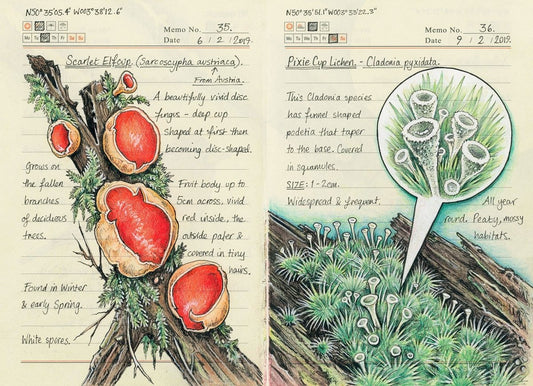 N50°35'05.4" W003°38'12.6"
Memo No. 35.
Mo Tu We Th Fr Sa Su
Date 6 / 2 / 2019.
Scarlet Elfcup (Sarcoscypha austriaca).
From Austria.
A beautifully vivid disc
fungus - deep cup
shaped at first then
becoming disc-shaped.
Grows on
the fallen
branches
of deciduous
trees.
Fruit body up to
5cm across, vivid
red inside, the
outside paler &
covered in tiny
hairs.
Found in Winter
& early Spring.
White spores.
Memo No. 36.
Mo Tu We Th Fr Sa Su
Date 9 / 2 / 2019.
Pixie Cup Lichen. - Cladonia pyxidata.
This Cladonia species
has funnel shaped
podetia that taper
to the base. Covered
in squamules.
SIZE: 1-2cm.
Widespread & frequent.
All year
round. Peaty, mossy
habitats.